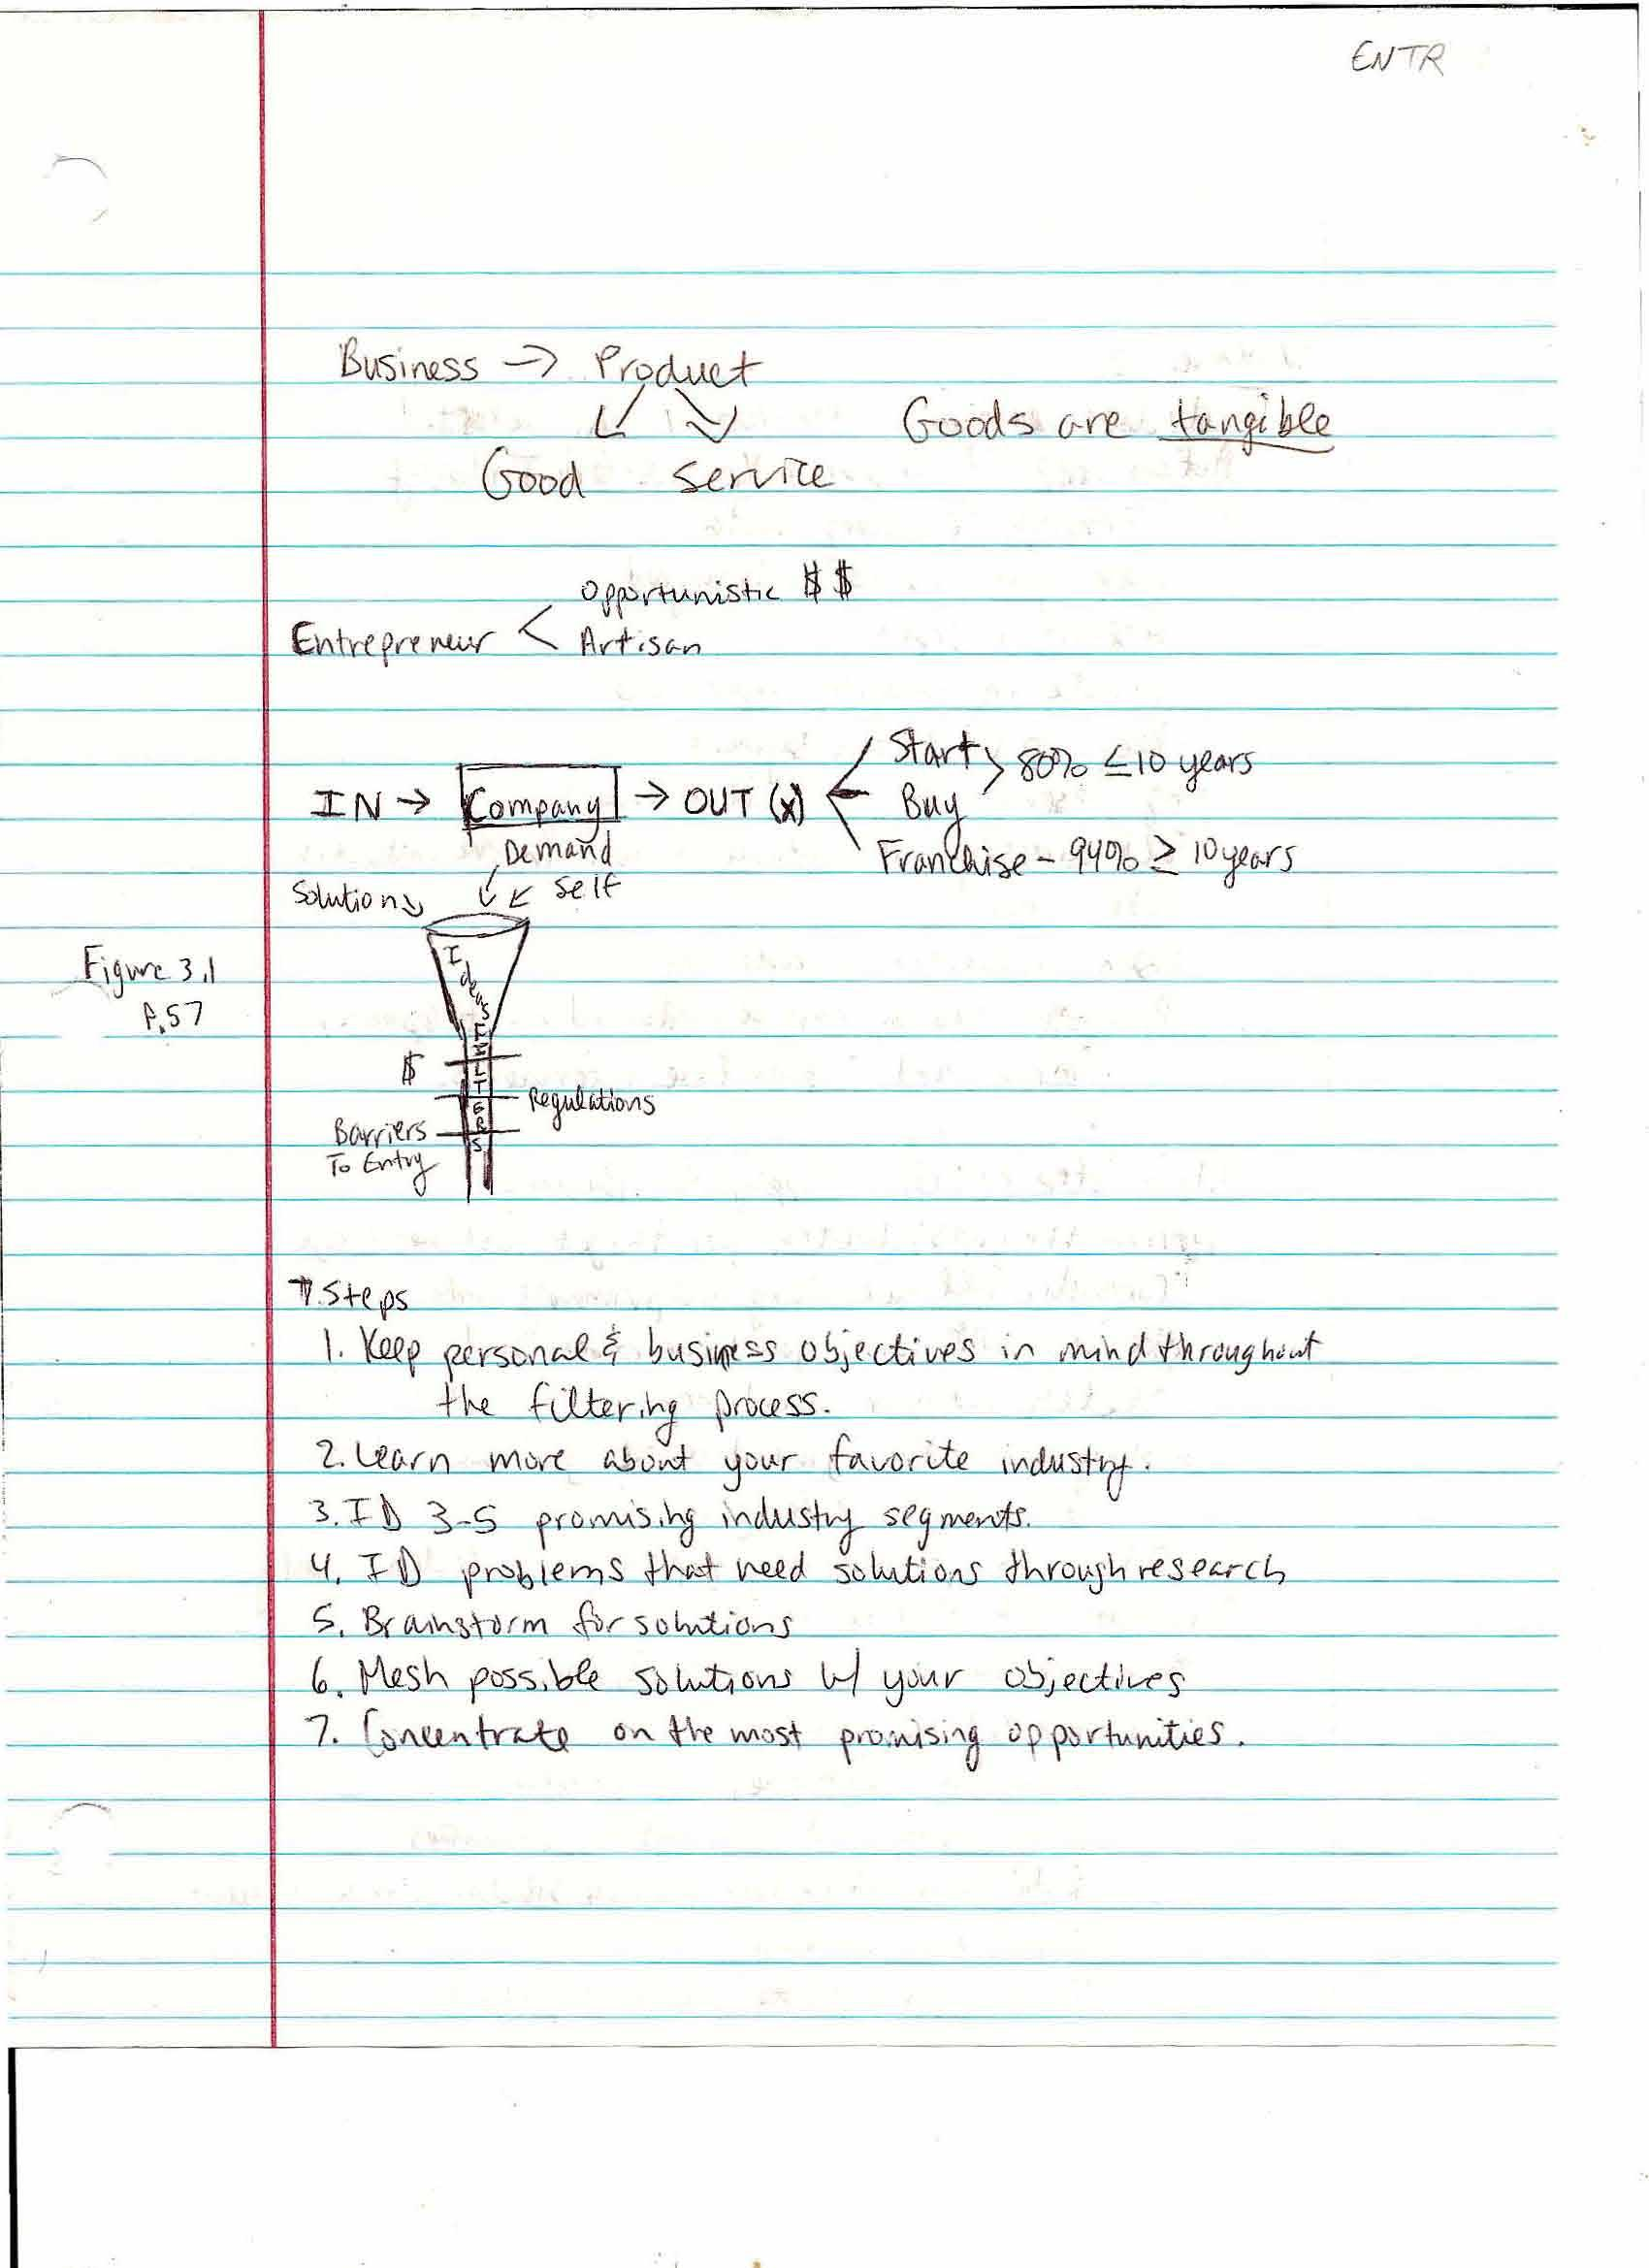 ENTR
Business → Product
Goods are tangible
Good Service
Opportunistic $ $
Entrepreneur < Artisan
Start
80% ≤ 10 years
IN → Company → OUT (x)
Buy
Franchise - 94% ≥ 10 years
Demand
Solutions
Self
Ideas
Figure 3.1
P.57
FILTERS
$
Regulations
Barriers
To Entry
7 Steps
1. Keep personal & business objectives in mind throughout
the filtering process.
2. Learn more about your favorite industry.
3. ID 3-5 promising industry segments.
4. ID problems that need solutions through research
5. Brainstorm for solutions
6. Mesh possible solutions w/ your objectives
7. Concentrate on the most promising opportunities.